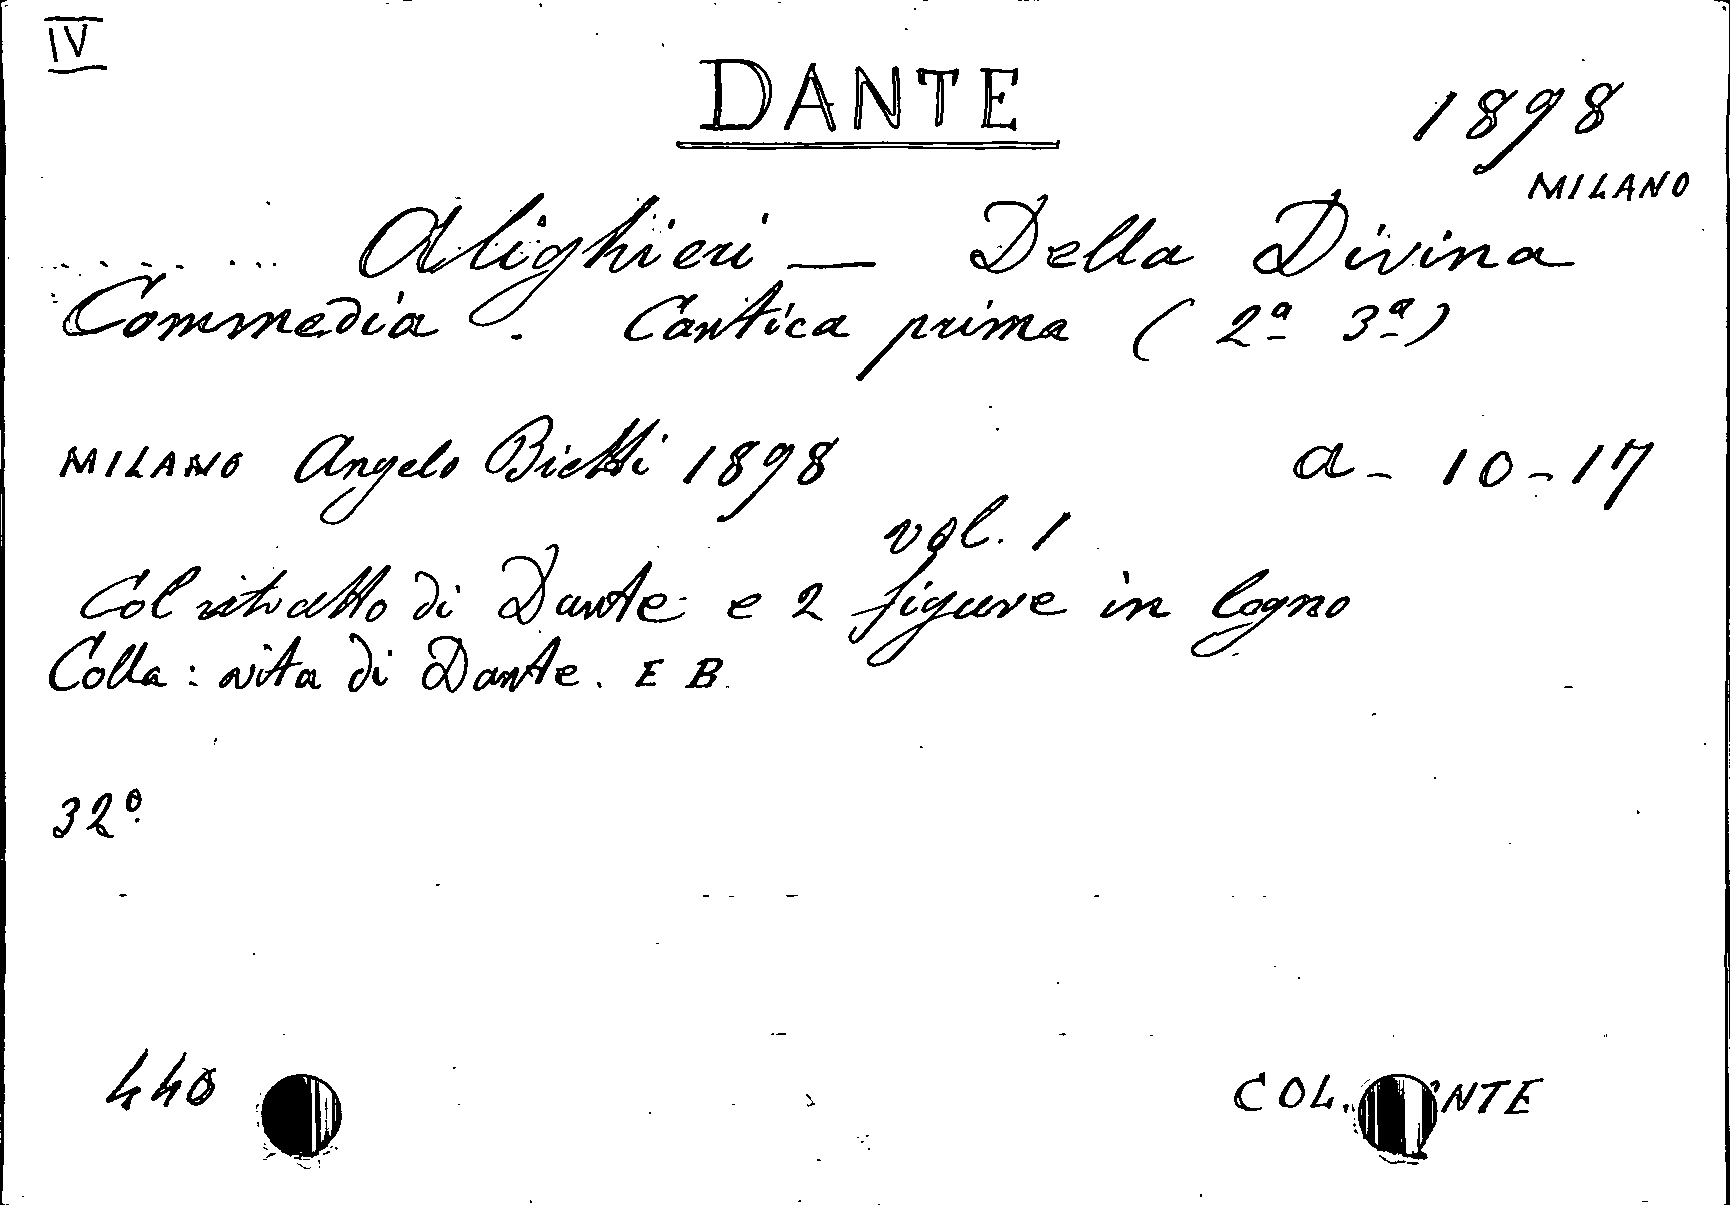 IV
DANTE
1898
MILANO
Alighieri — Della Divina
Commedia. Cantica prima (2ª 3ª)
MILANO Angelo Bietti 1898 a - 10 - 17
vol. 1
Col ritratto di Dante e 2 figure in legno
Colla: vita di Dante. E B.
32º
440 COL. NTE